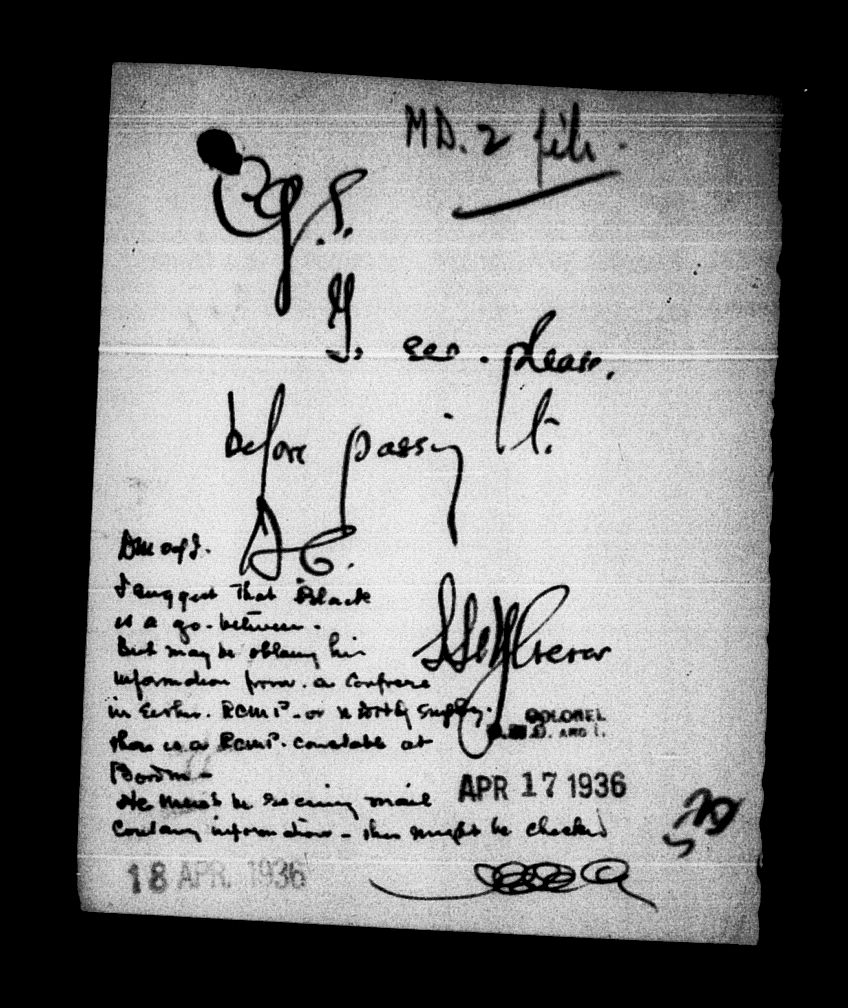 MD. 2 file.
C.G.S.
To see. please.
before passing to
D C.
DMO & I.
I suggest that Black
is a go-between.
But may be obtaing his
information from. a confrere
in either. RCMP. or
there is a RCMP. constable at
He must be receiving mail
Contang information - this might be checked
COLONEL
D.M.O. AND I.
APR 17 1936
18 APR. 1936